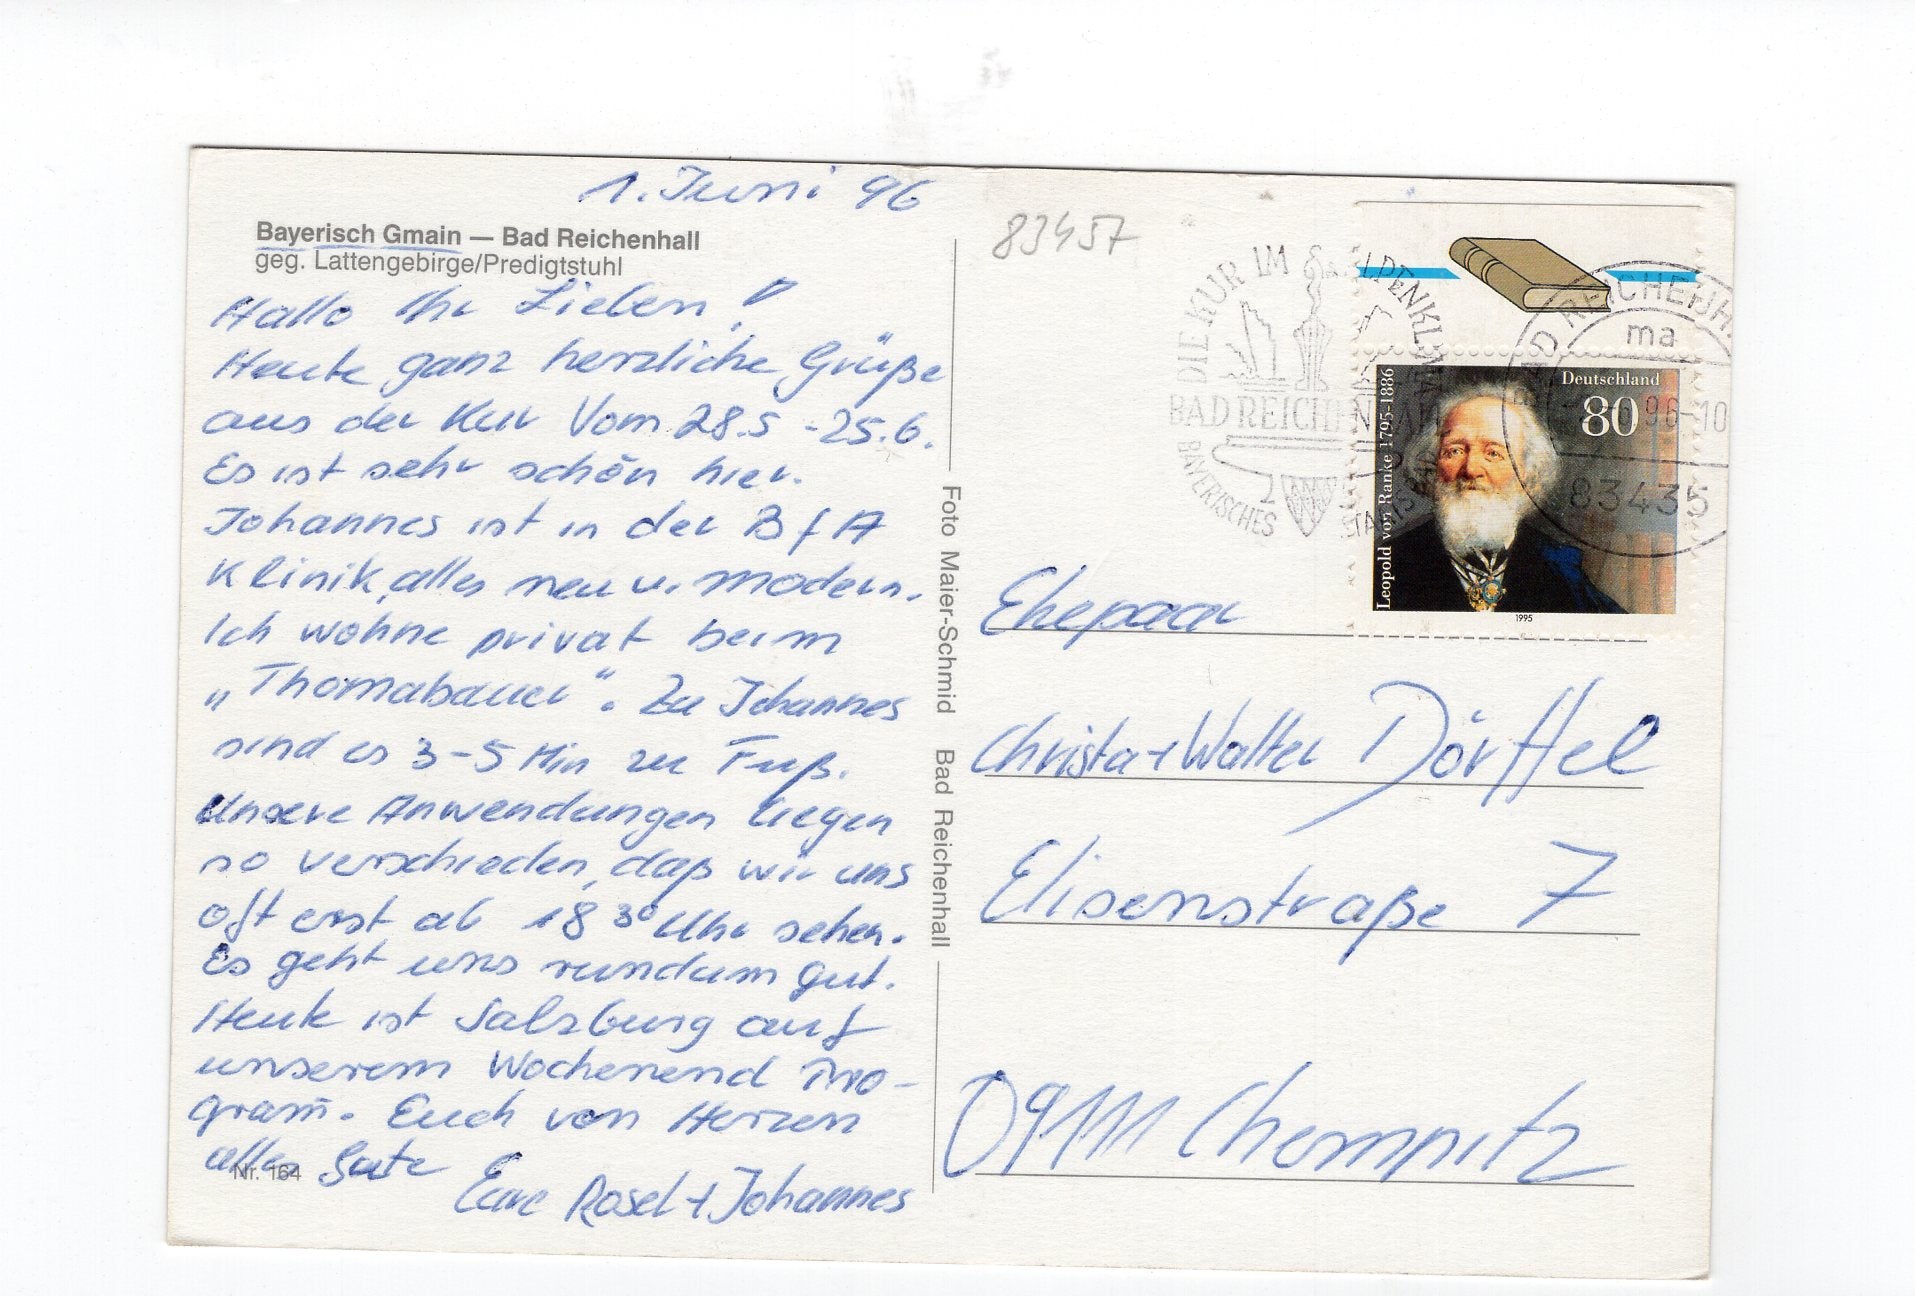 1. Juni 96
Bayerisch Gmain — Bad Reichenhall
geg. Lattengebirge/Predigtstuhl
Hallo Ihr Lieben!
Heute ganz herzliche Grüße
aus der Kur vom 28.5 - 25.6.
Es ist sehr schön hier.
Johannes ist in der BfA
Klinik, alles neu u. modern.
Ich wohne privat beim
„Thomabauer". Zu Johannes
sind es 3-5 Min zu Fuß.
Unsere Anwendungen liegen
so verschieden, daß wir uns
oft erst ab 18 30 Uhr sehen.
Es geht uns rundum gut.
Heute ist Salzburg auf
unserem Wochenend Pro-
gram̄. Euch von Herzen
alles Gute
Nr. 164
Eure Rosel + Johannes
Foto Maier-Schmid Bad Reichenhall
83457
DIE KUR IM ALPENKLIMA
BAD REICHENHALL
BAYERISCHES STAATSBAD
BAD REICHENH.
ma
96-10
83435
Deutschland
80
Leopold von Ranke 1795-1886
1995
Ehepaar
Christa + Walter Dörffel
Elisenstraße 7
09111 Chemnitz